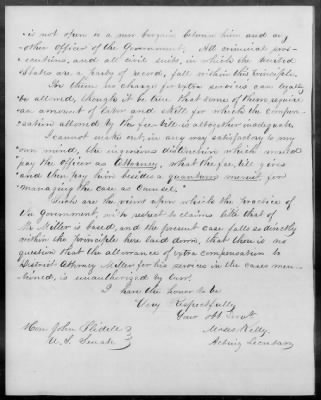 is not open to a new bargain between him and any
other officer of the Government. All criminal pros-
ecutions, and all civil suits, in which the United
States are a party of record, fall within this principle.
In them no charge for extra services can legally
be allowed, though it be true that some of them require
an amount of labor and skill for which the compen-
sation allowed by the fee bill is altogether inadequate.
I cannot make out, in any way satisfactory to my
own mind, the ingenious distinction which would
pay the officer as Attorney, what the fee bill gives
and then pay him besides a quantum meruit for
managing the case as Counsel."
Such are the views upon which the practice of
the Government, with respect to claims like that of
Mr Miller is based, and the present case falls so directly
within the principle here laid down, that there is no
question that the allowance of extra compensation to
District Attorney Miller for his services in the cases men-
tioned, is unauthorized by law.
I have the honor to be
Very Respectfully
Your obt Servt
Moses Kelly
Acting Secretary
Hon John Slidell
U. S. Senate